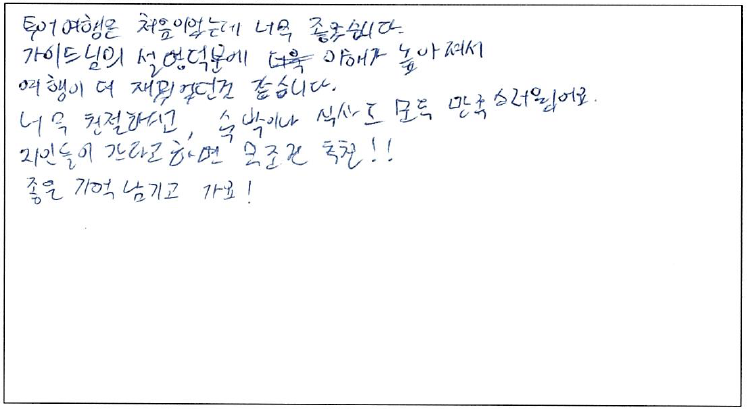 투어여행은 처음이었는데 너무 좋았습니다.
가이드님의 설명덕분에 더욱 이해가 높아져서
여행이 더 재밌었던것 같습니다.
너무 친절하시고, 숙박이나 식사도 모두 만족스러웠어요.
지인들이 간다고하면 무조건 추천!!
좋은 기억 남기고 가요!